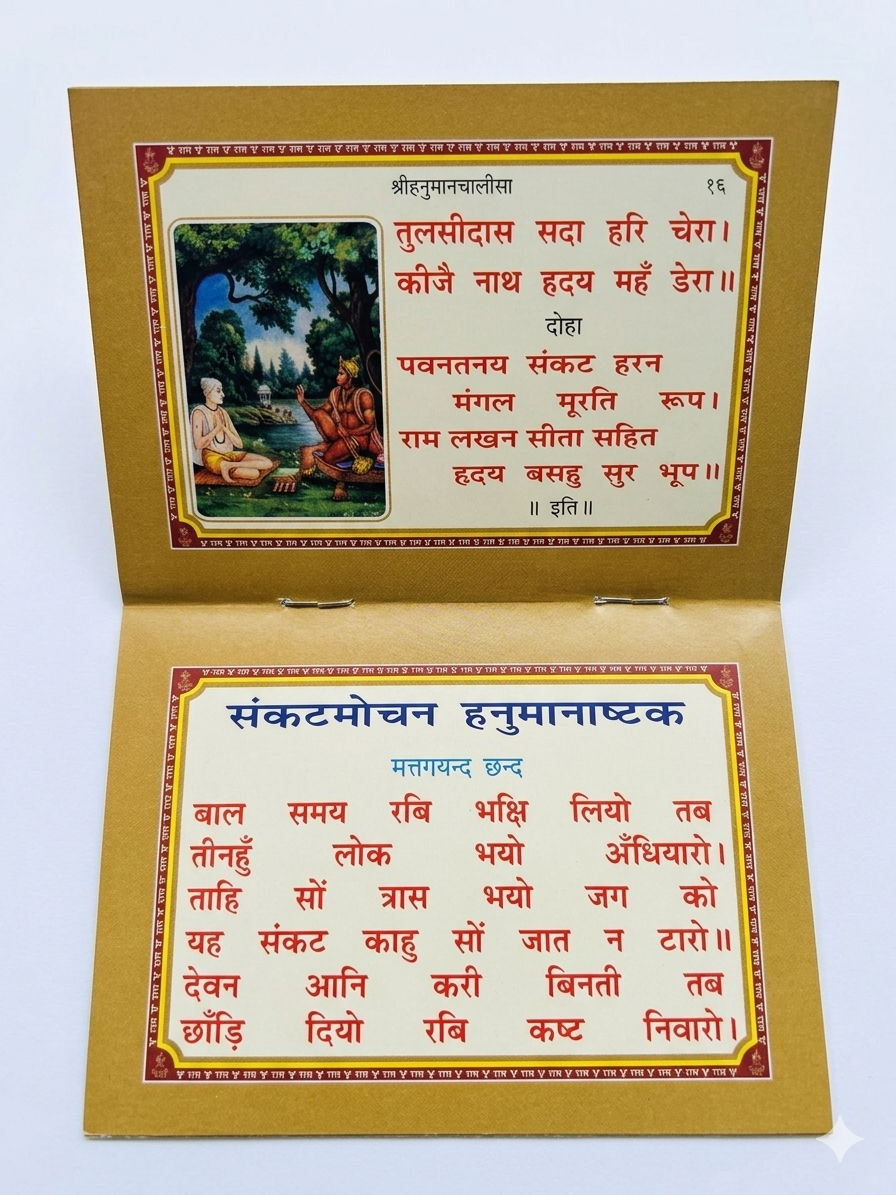 श्रीहनुमानचालीसा १६
तुलसीदास सदा हरि चेरा।
कीजै नाथ हृदय महँ डेरा॥
दोहा
पवनतनय संकट हरन
मंगल मूरति रूप।
राम लखन सीता सहित
हृदय बसहु सुर भूप॥
॥ इति॥
संकटमोचन हनुमानाष्टक
मत्तगयन्द छन्द
बाल समय रबि भक्षि लियो तब
तीनहुँ लोक भयो अँधियारो।
ताहि सों त्रास भयो जग को
यह संकट काहु सों जात न टारो॥
देवन आनि करी बिनती तब
छाँड़ि दियो रबि कष्ट निवारो।